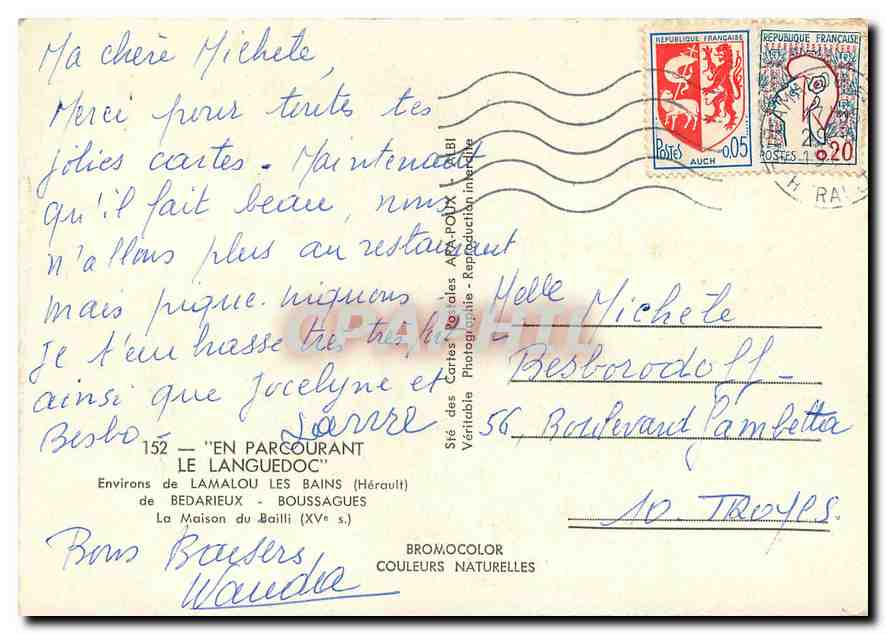 Ma chère Michele,
Merci pour toutes tes
jolies cartes - Maintenant
qu'il fait beau, nous
n'allons plus au restaurant
mais pique-niquons
Je t'embrasse très très fort
ainsi que Jocelyne et
Besbo -
152 — "EN PARCOURANT
LE LANGUEDOC"
Environs de LAMALOU LES BAINS (Hérault)
de BEDARIEUX - BOUSSAGUES
La Maison du Bailli (XVe s.)
Bons Baisers
Wanda
BROMOCOLOR
COULEURS NATURELLES
Sté des Cartes Postales APA-POUX - ALBI
Véritable Photographie - Reproduction interdite
RÉPUBLIQUE FRANÇAISE
POSTES 0,05
AUCH
RÉPUBLIQUE FRANÇAISE
POSTES 0,20
Melle Michèle
Besborodoff -
56, Boulevard Gambetta
10. TROYES.
CPAPHIL